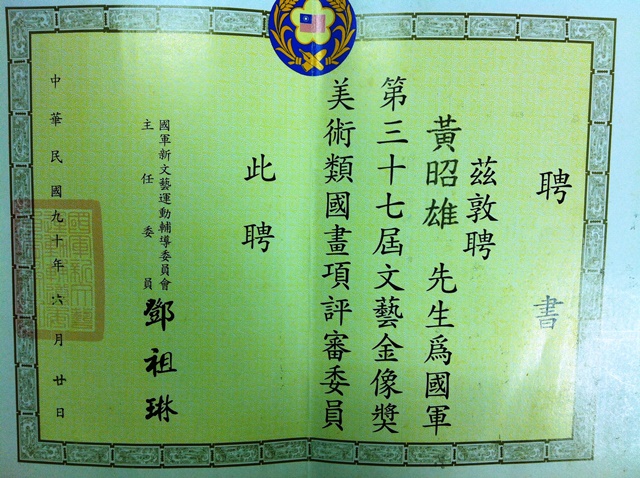 聘書
茲敦聘
黃昭雄 先生為國軍
第三十七屆文藝金像獎
美術類國畫項評審委員
此聘
國軍新文藝運動輔導委員會
主任委員 鄧祖琳
中華民國九十年六月廿日